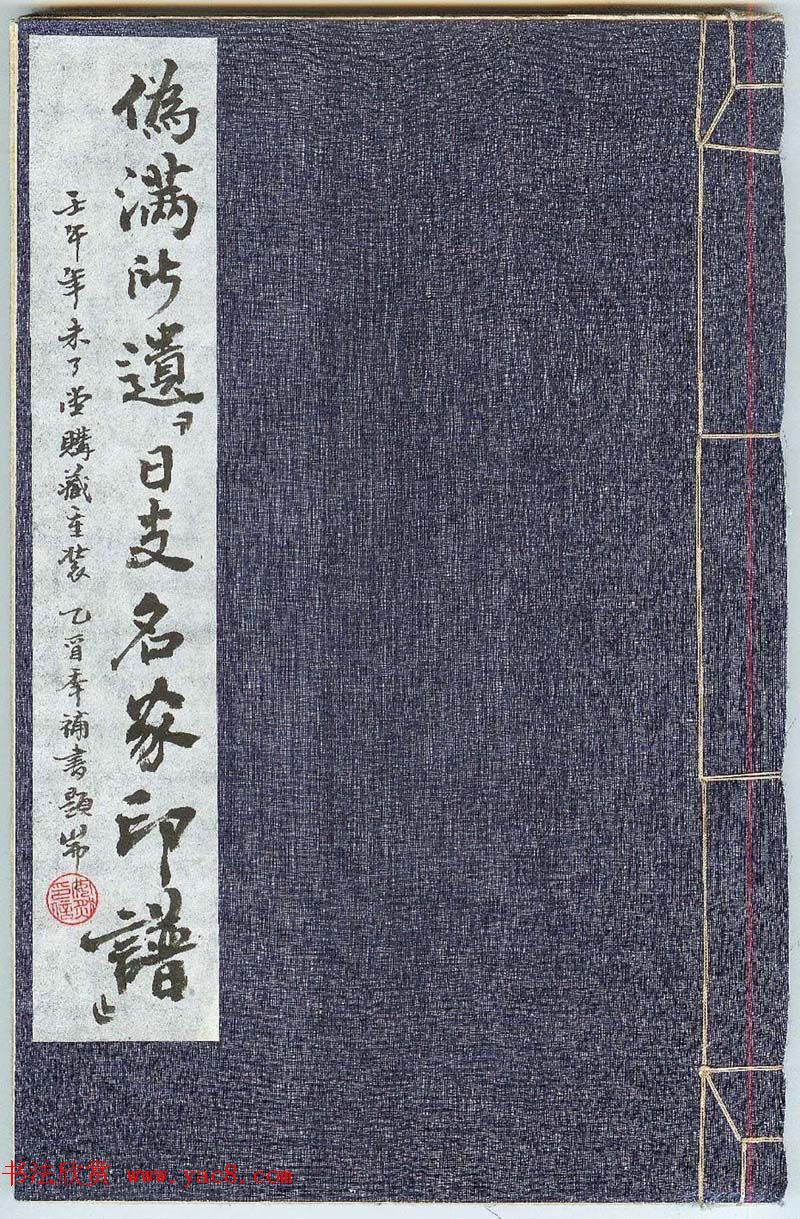 偽滿所遺『日支名家印譜』
壬午年未了堂購藏重裝 乙酉年補書題耑
书法欣赏 www.yac8.com